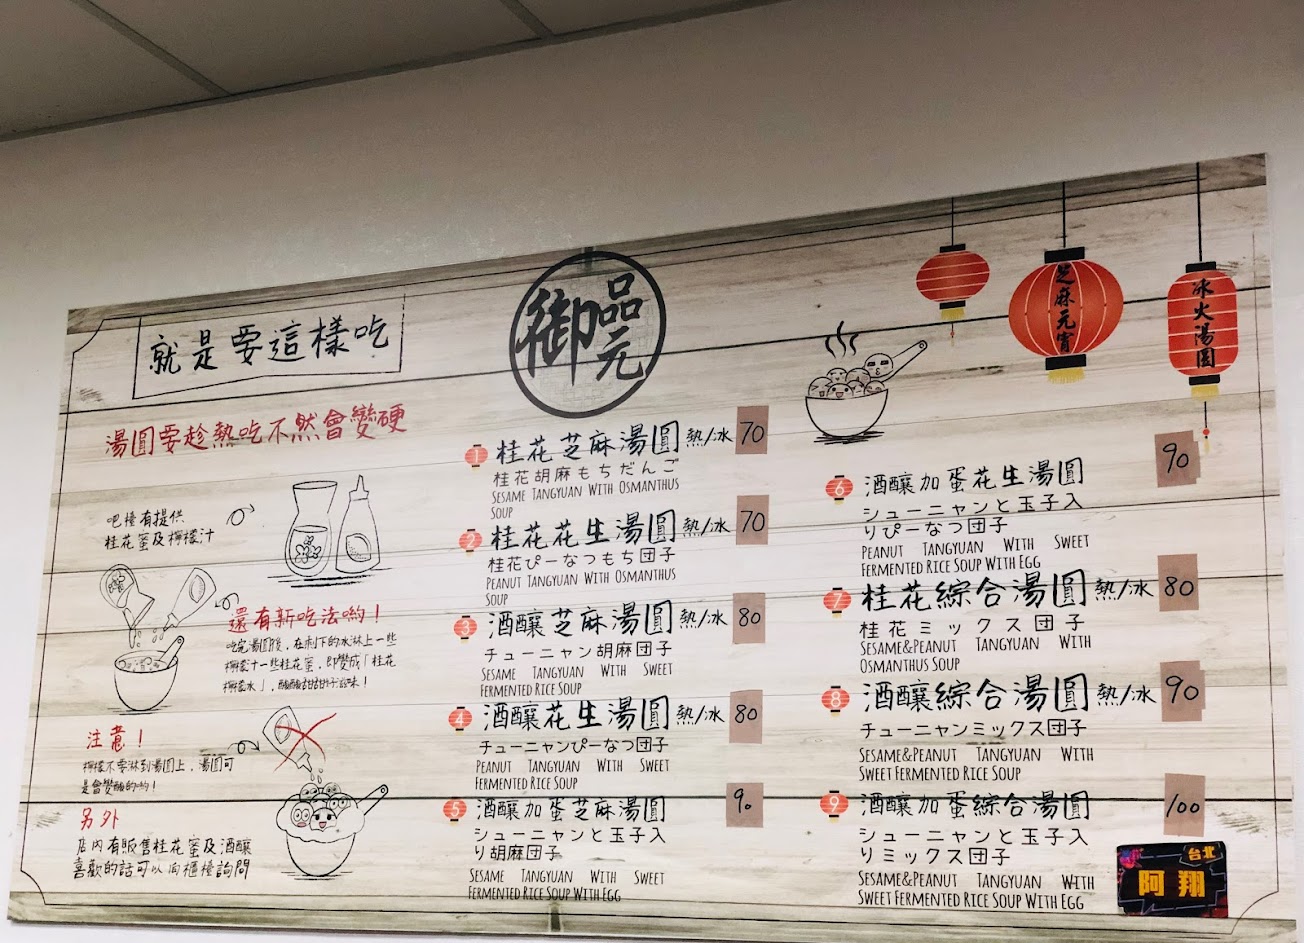 就是要這樣吃
湯圓要趁熱吃不然會變硬
吧檯有提供
桂花蜜及檸檬汁
還有新吃法喲!
吃完湯圓後,在剩下的冰淋上一些
檸檬汁一些桂花蜜,即變成「桂花
檸檬冰」,酸酸甜甜好滋味!
注意!
檸檬不要淋到湯圓上,湯圓可
是會變酸的喲!
另外
店內有販售桂花蜜及酒釀
喜歡的話可以向櫃檯詢問
御品元
芝麻元宵
冰火湯圓
1 桂花芝麻湯圓 熱/冰 70
桂花胡麻もちだんご
SESAME TANGYUAN WITH OSMANTHUS
SOUP
2 桂花花生湯圓 熱/冰 70
桂花ぴーなつもち団子
PEANUT TANGYUAN WITH OSMANTHUS
SOUP
3 酒釀芝麻湯圓 熱/冰 80
チューニャン胡麻団子
SESAME TANGYUAN WITH SWEET
FERMENTED RICE SOUP
4 酒釀花生湯圓 熱/冰 80
チューニャンぴーなつ団子
PEANUT TANGYUAN WITH SWEET
FERMENTED RICE SOUP
5 酒釀加蛋芝麻湯圓 90
シューニャンと玉子入
り胡麻団子
SESAME TANGYUAN WITH SWEET
FERMENTED RICE SOUP WITH EGG
6 酒釀加蛋花生湯圓 90
シューニャンと玉子入
りぴーなつ団子
PEANUT TANGYUAN WITH SWEET
FERMENTED RICE SOUP WITH EGG
7 桂花綜合湯圓 熱/冰 80
桂花ミックス団子
SESAME&PEANUT TANGYUAN WITH
OSMANTHUS SOUP
8 酒釀綜合湯圓 熱/冰 90
チューニャンミックス団子
SESAME&PEANUT TANGYUAN WITH
SWEET FERMENTED RICE SOUP
9 酒釀加蛋綜合湯圓 100
シューニャンと玉子入
りミックス団子
SESAME&PEANUT TANGYUAN WITH
SWEET FERMENTED RICE SOUP WITH EGG
台北
阿翔